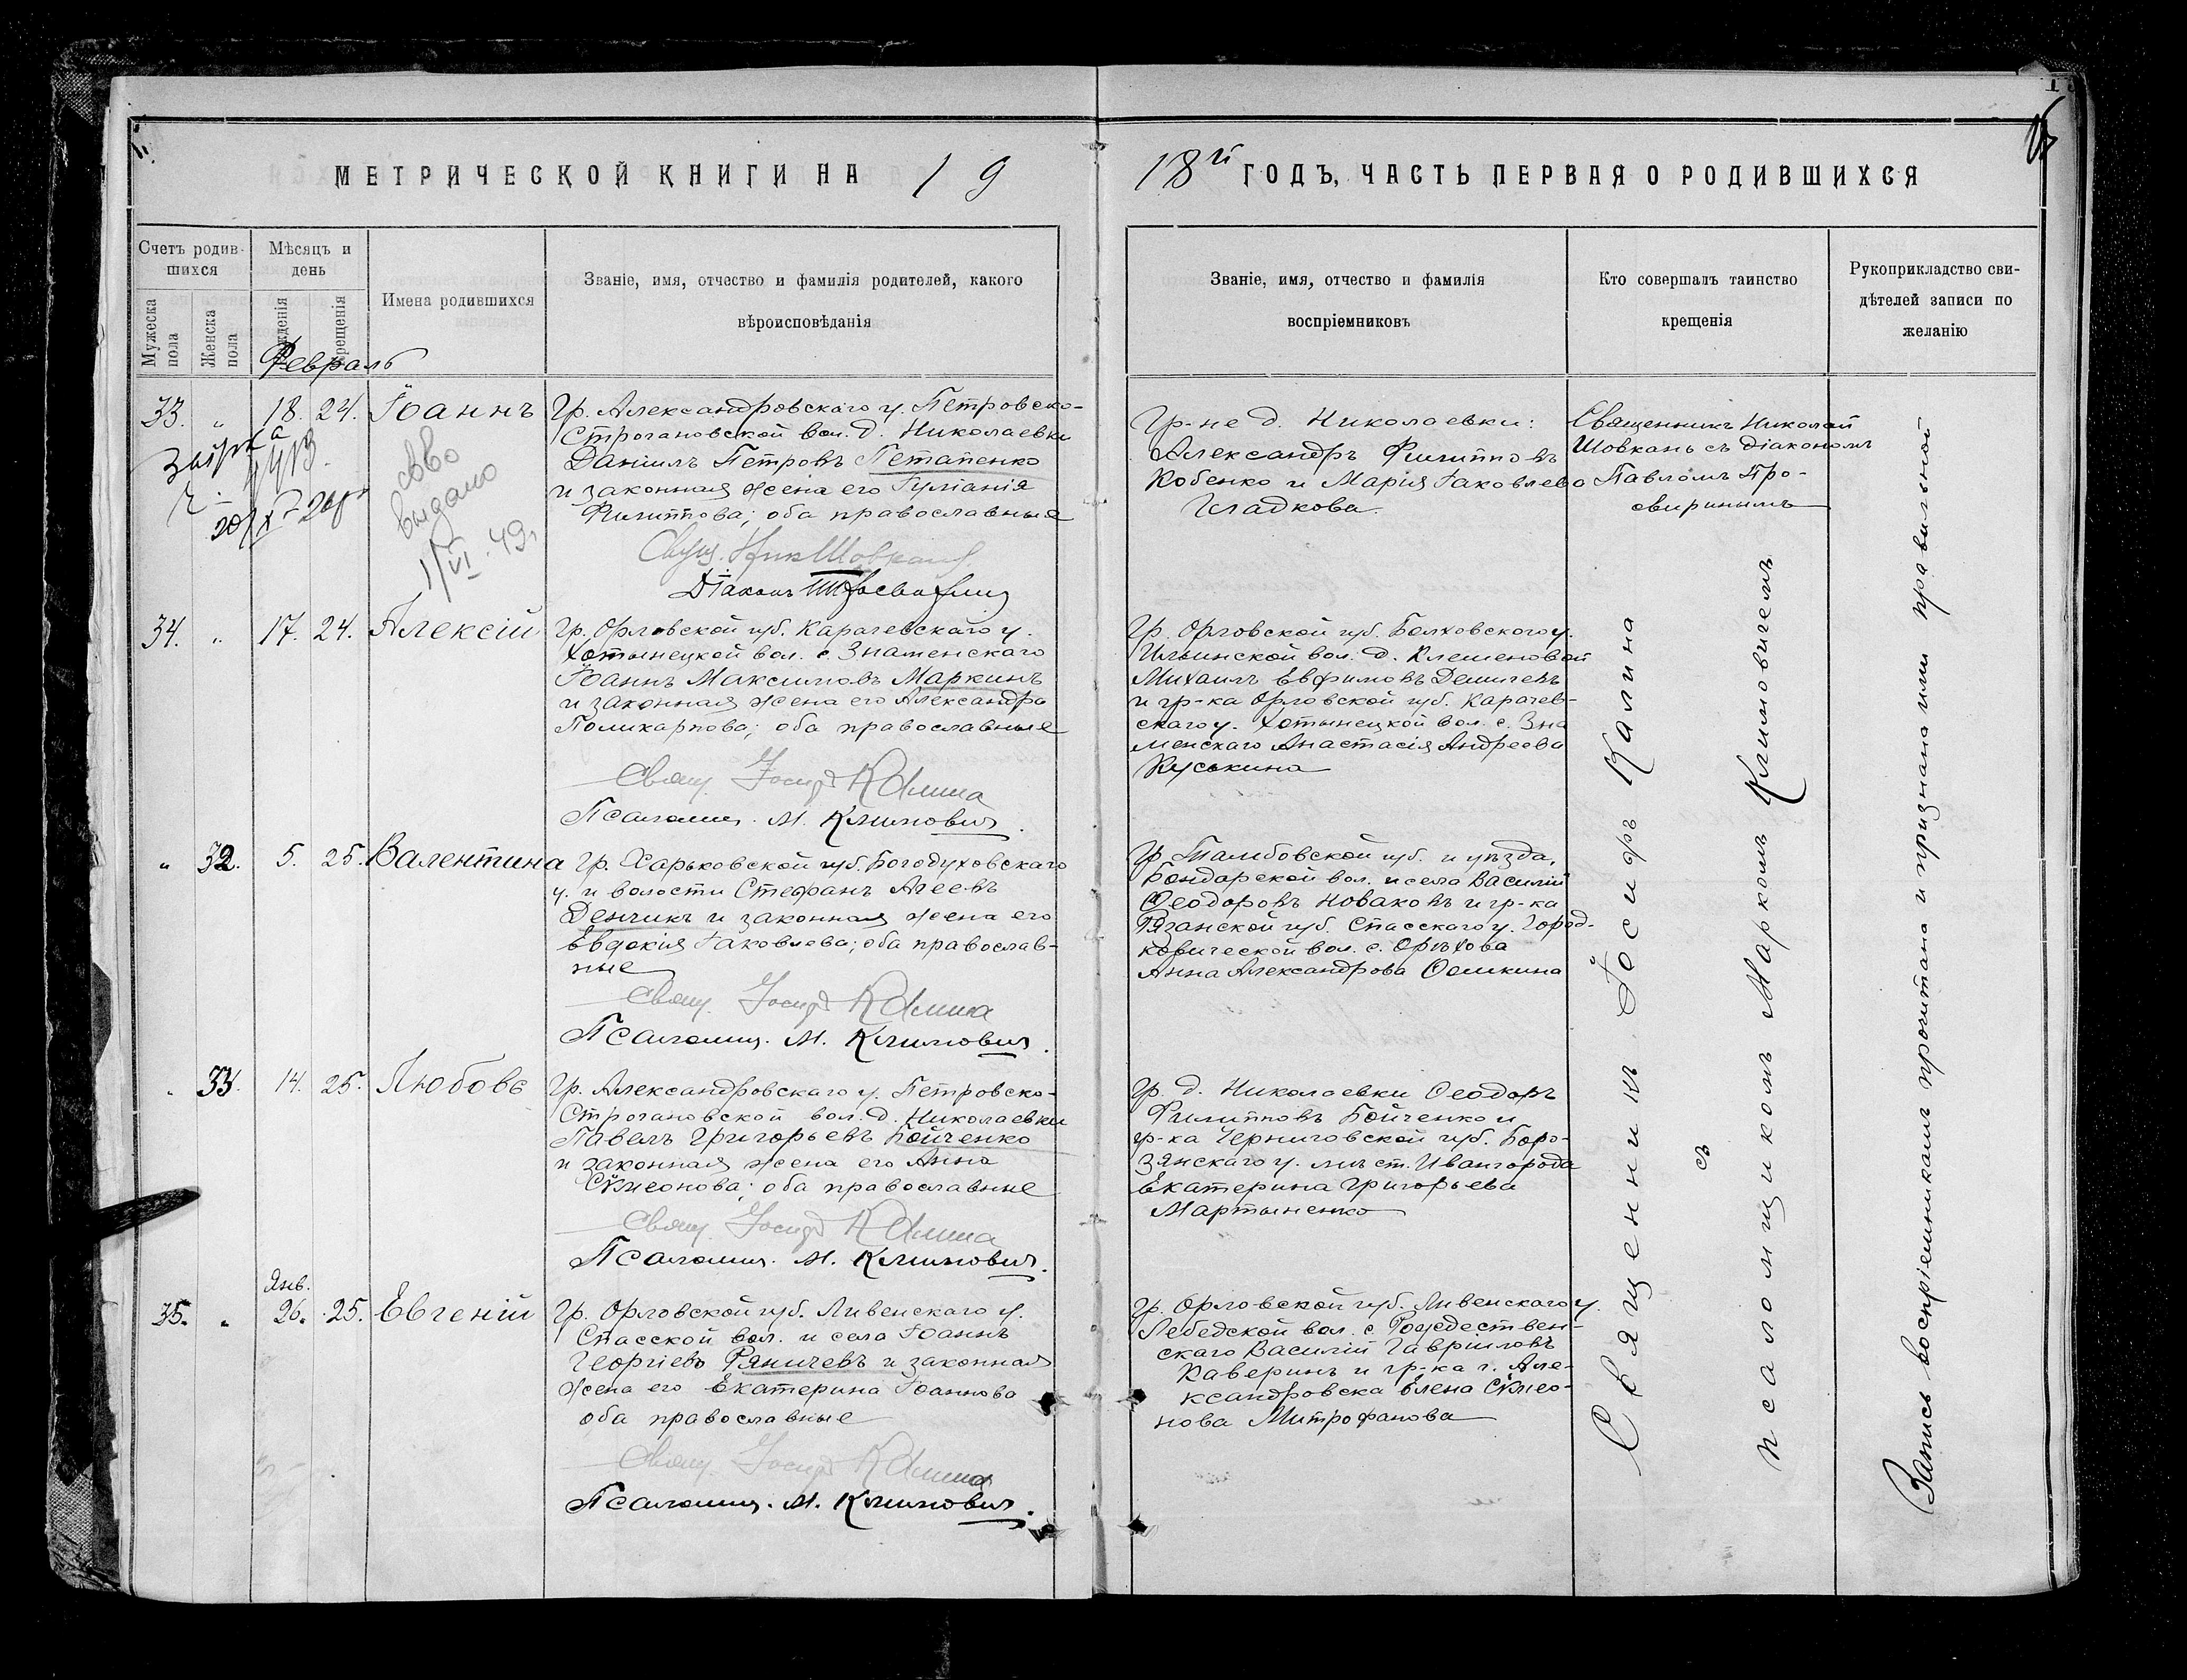 МЕТРИЧЕСКОЙ КНИГИ НА 19
18й ГОДЪ, ЧАСТЬ ПЕРВАЯ О РОДИВШИХСЯ
Счетъ родив-
шихся
Мужеска
пола
Женска
пола
Мѣсяцъ и
день
рожденія
крещенія
Имена родившихся
Званіе, имя, отчество и фамилія родителей, какого
вѣроисповѣданія
Званіе, имя, отчество и фамилія
воспріемниковъ
Кто совершалъ таинство
крещенія
Рукоприкладство сви-
дѣтелей записи по
желанію
Февраль
33. „ 18. 24. Іоаннъ
выдано
1/VI-49г
Гр. Александровскаго у. Петровско-
Строгановской вол. д. Николаевки
Даніилъ Петровъ Петапенко
и законная жена его Іуліанія
Филиппова; оба православные
Діаконъ
Гр-не д. Николаевки:
Александръ Филипповъ
Кобенко и Марія Іаковлева
Гладкова.
Священникъ Николай
Шовкань съ діакономъ
Павломъ Про-
свиринымъ
34. „ 17. 24. Алексій
Гр. Орловской губ. Карачевскаго у.
Хотынецкой вол. с. Знаменскаго
Іоаннъ Максимовъ Маркинъ
и законная жена его Александра
Поликарпова; оба православные
Свящ. Іосифъ Калина
Псаломщ. М. Климович.
Гр. Орловской губ. Болховскаго у.
Ильинской вол. д. Клеменовой
Михаилъ Евфимовъ Демичевъ
и гр-ка Орловской губ. Карачев-
скаго у. Хотынецкой вол. с. Зна
менскаго Анастасія Андреева
Куськина
„ 32. 5. 25. Валентина
Гр. Харьковской губ. Богодуховскаго
у. и волости Стефанъ Агеевъ
Денчикъ и законная жена его
Евдокія Іаковлева; оба православ-
ные
Свящ. Іосифъ Калина
Псаломщ. М. Климович.
Гр. Тамбовской губ. и уѣзда,
Бондарской вол. и села Василій
Ѳеодоровъ Новаковъ и гр-ка
Рязанской губ. Спасскаго у. Город-
ковической вол. с. Орѣхова
Анна Александрова Ѳомкина
„ 33. 14. 25. Любовь
Гр. Александровскаго у. Петровско-
Строгановской вол. д. Николаевки
Павелъ Григорьевъ Бойченко
и законная жена его Анна
Сѵмеонова; оба православные
Свящ. Іосифъ Калина
Псаломщ. М. Климович.
Гр. д. Николаевки Ѳеодоръ
Филипповъ Бойченко и
гр-ка Черниговской губ. Борз-
зянскаго у. мѣст. Ивангорода
Екатерина Григорьева
Мартыненко
Янв.
35. „ 26. 25. Евгеній
Гр. Орловской губ. Ливенскаго у.
Спасской вол. и села Іоаннъ
Георгіевъ Ряничевъ и законная
жена его Екатерина Іоаннова
оба православные
Свящ. Іосифъ Калина
Псаломщ. М. Климович.
Гр. Орловской губ. Ливенскаго у.
Лебедской вол. с. Рождествен-
скаго Василій Гавріиловъ
Каверинъ и гр-ка г. Але-
ксандровска Елена Сѵмео-
нова Митрофанова
Священникъ Іосифъ Калина
съ
псаломщикомъ Маркомъ Климовичемъ
Запись воспріемниками прочитана и признана ими правильной